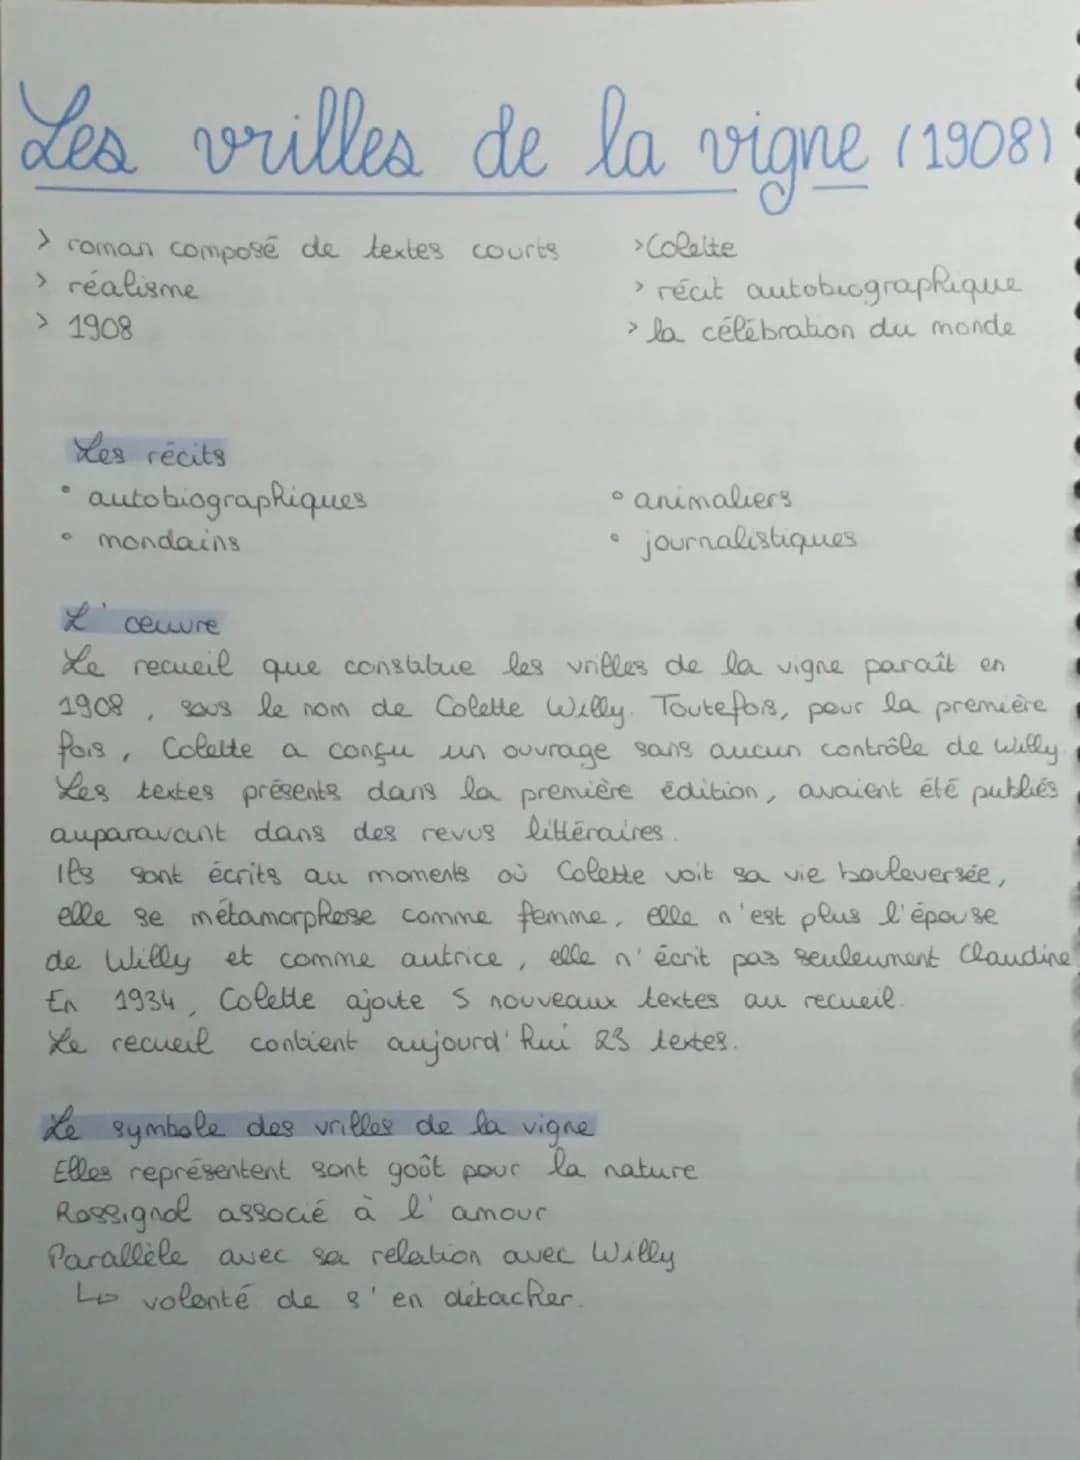 Les vrilles de la vigne (1908)
> roman composé de textes courts
> réalisme
> 1908
> Colette
> récit autobiographique
> la célébration du monde
Les récits
• autobiographiques
• mondains
• animaliers
• journalistiques
L'œuvre
Le recueil que constitue les vrilles de la vigne paraît en
1908, sous le nom de Colette Willy. Toutefois, pour la première
fois, Colette a conçu un ouvrage sans aucun contrôle de Willy.
Les textes présents dans la première édition, avaient été publiés
auparavant dans des revus littéraires.
Ils sont écrits au moments où Colette voit sa vie bouleversée,
elle se métamorphose comme femme, elle n'est plus l'épouse
de Willy et comme autrice, elle n'écrit pas seuleument Claudine
En 1934, Colette ajoute 5 nouveaux textes au recueil.
Le recueil contient aujourd'hui 23 textes.
Le symbole des vrilles de la vigne
Elles représentent sont goût pour la nature
Rossignol associé à l'amour
Parallèle avec sa relation avec Willy
↳ volonté de s'en détacher.